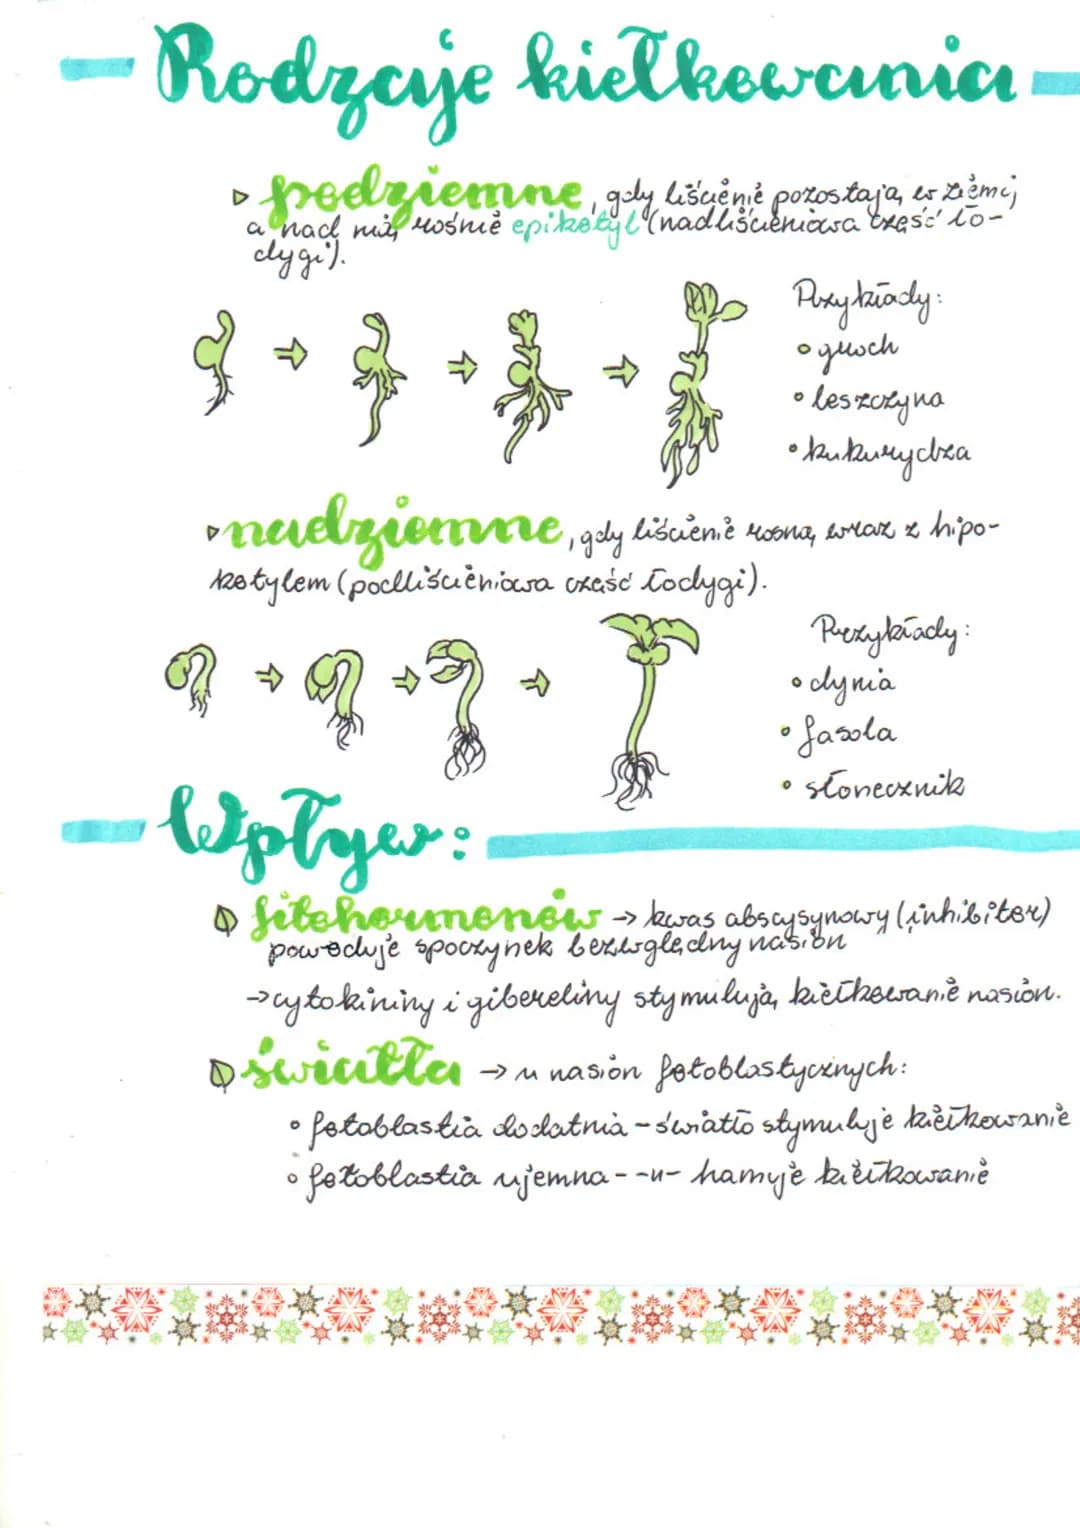 Rodzaje kiełkowania
podziemne, gdy liścienie pozostają w ziemi,
a nad nią rośnie epikotyl (nadliścieniowa część ło-
dygi).
Przykłady:
groch
leszczyna
kukurydza
nadziemne, gdy liścienie rosną wraz z hipo-
kotylem (podliścieniowa część łodygi).
Przykłady:
dynia
fasola
słonecznik
Wpływ:
fitohormonów → kwas abscysynowy (inhibitor)
powoduje spoczynek bezwględny nasion
→ cytokininy i gibereliny stymulują kiełkowanie nasion.
światła → u nasion fotoblastycznych:
• fotoblastia dodatnia - światło stymuluje kiełkowanie
• fotoblastia ujemna - -||- hamuje kiełkowanie